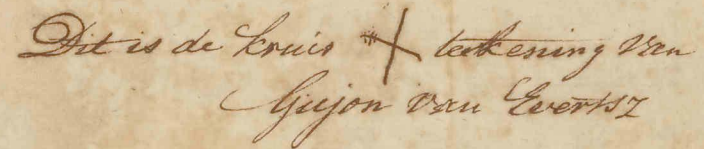 Dit is de kruis teekening van
Gujon van Evertsz